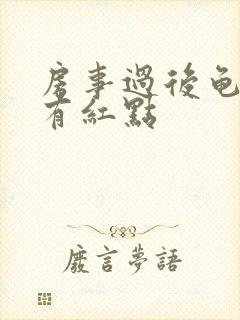 房事過後龟
有紅點
廢言夢語